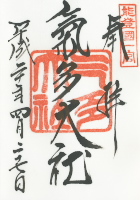 能登國一宮
奉拝
氣多大社
平成二十年四月二七日